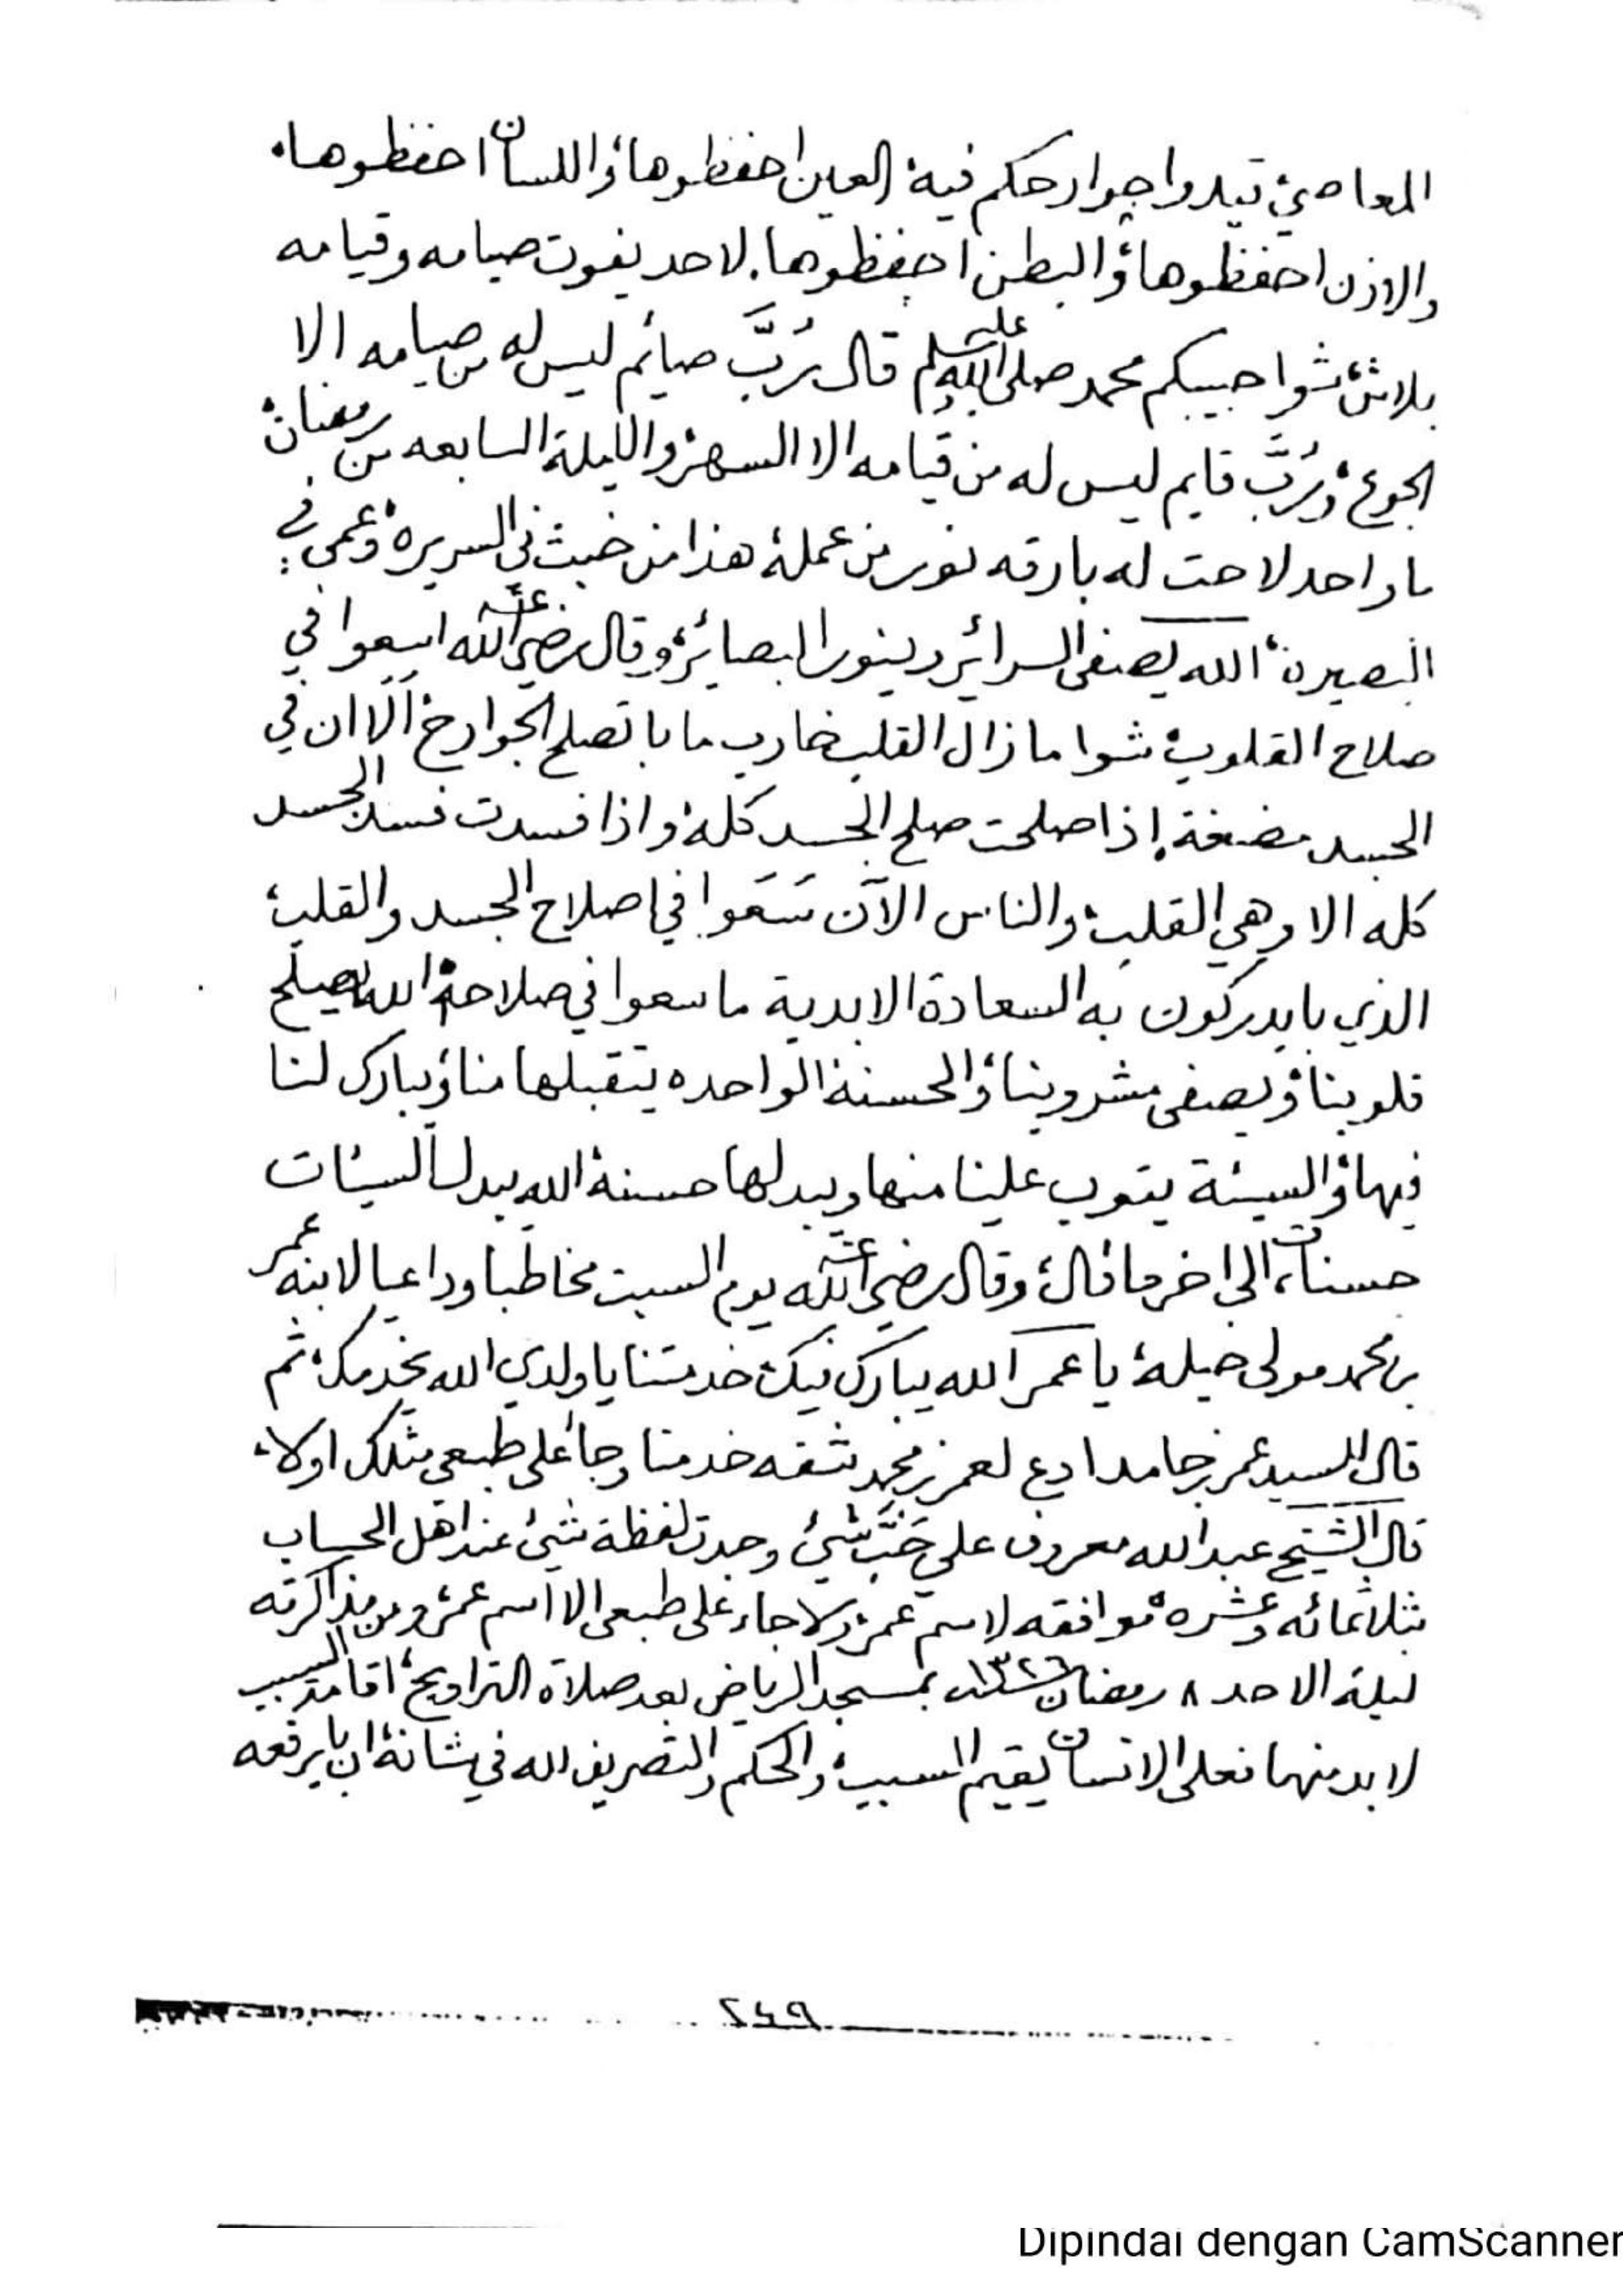 المعاصي، قيدوا جوارحكم فيه، العين احفظوها، واللسان احفظوها،
والاذن احفظوها، والبطن احفظوها. لا حد يفوت صيامه وقيامه
بلاش، شوا حبيبكم محمد صلى الله عليه وسلم قال رُبَّ صائم ليس له من صيامه الا
الجوع، ورُبَّ قايم ليس له من قيامه الا السهر، والليلة السابعه من رمضان،
ما واحد لاحت له بارقه نور من عمله، هذا من خبث في السريره، وعمى في
البصيرة، الله يصفي السرائر وينور البصائر، وقال رضي الله عنه اسعوا في
صلاح القلوب، شوا ما زال القلب خارب ما با تصلح الجوارح، ألا ان في
الجسد مضغة إذا صلحت صلح الجسد كله، واذا فسدت فسد الجسد
كله الا وهي القلب، والناس الآن سَعَوا في اصلاح الجسد والقلب،
الذي با يدركون به السعادة الابدية ما سعوا في صلاحه، الله يصلح
قلوبنا، ويصفي مشروبنا، والحسنة الواحده يتقبلها منا، ويبارك لنا
فيها، والسيئة يتوب علينا منها ويبدلها حسنة، الله يبدل السيئات
حسنات، الى اخر ما قال، وقال رضي الله عنه يوم السبت مخاطبا وداعيا لابنه عمر
بن محمد مولى خيله، يا عمر الله يبارك فيك، خدمتنا يا ولدي الله يخدمك، ثم
قال للسيد عمر بن حامد ادع لعمر بن محمد شفه خدمنا وجا على طبعي مثلك اولا،
قال الشيخ عبد الله معروف علي حَبّ شيئ وجدت لفظة شيئ عند اهل الحساب
بثلاثمائه وعشره، موافقه لاسم عمر، ولا جاء على طبعي الا اسم عمر، ومن مذاكرته
ليلة الاحد ٨ رمضان ١٣٢٦ بمسجد الرياض بعد صلاة التراويح، اقامة السبب
لا بد منها فعلى الانسان يقيم السبب، والحكم والتصريف لله في شانه، ان با يرفعه
٢٤٩
Dipindai dengan CamScanner